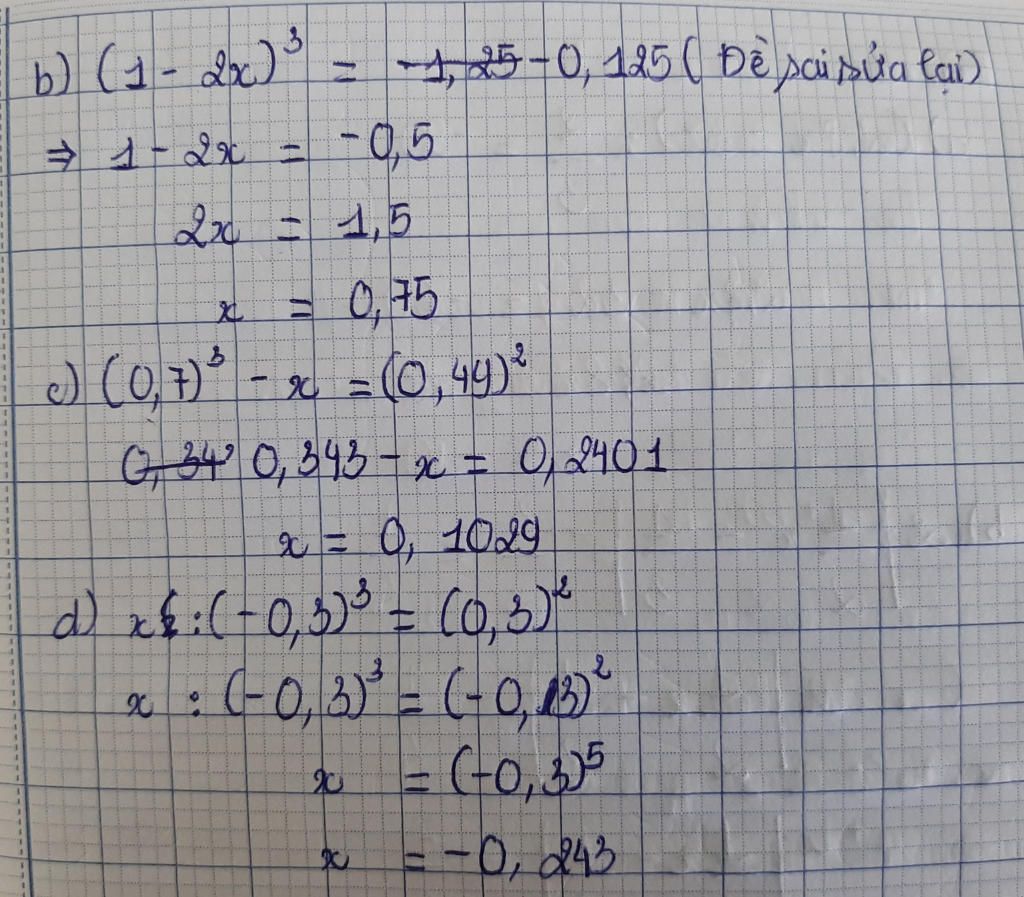 b) (1 - 2x)³ = -1,25 -0,125 ( Đề sai sửa lại)
⇒ 1 - 2x = -0,5
2x = 1,5
x = 0,75
c) (0,7)³ - x = (0,49)²
0,34 0,343 - x = 0,2401
x = 0,1029
d) x : (-0,3)³ = (0,3)²
x : (-0,3)³ = (-0,3)²
x = (-0,3)⁵
x = -0,243